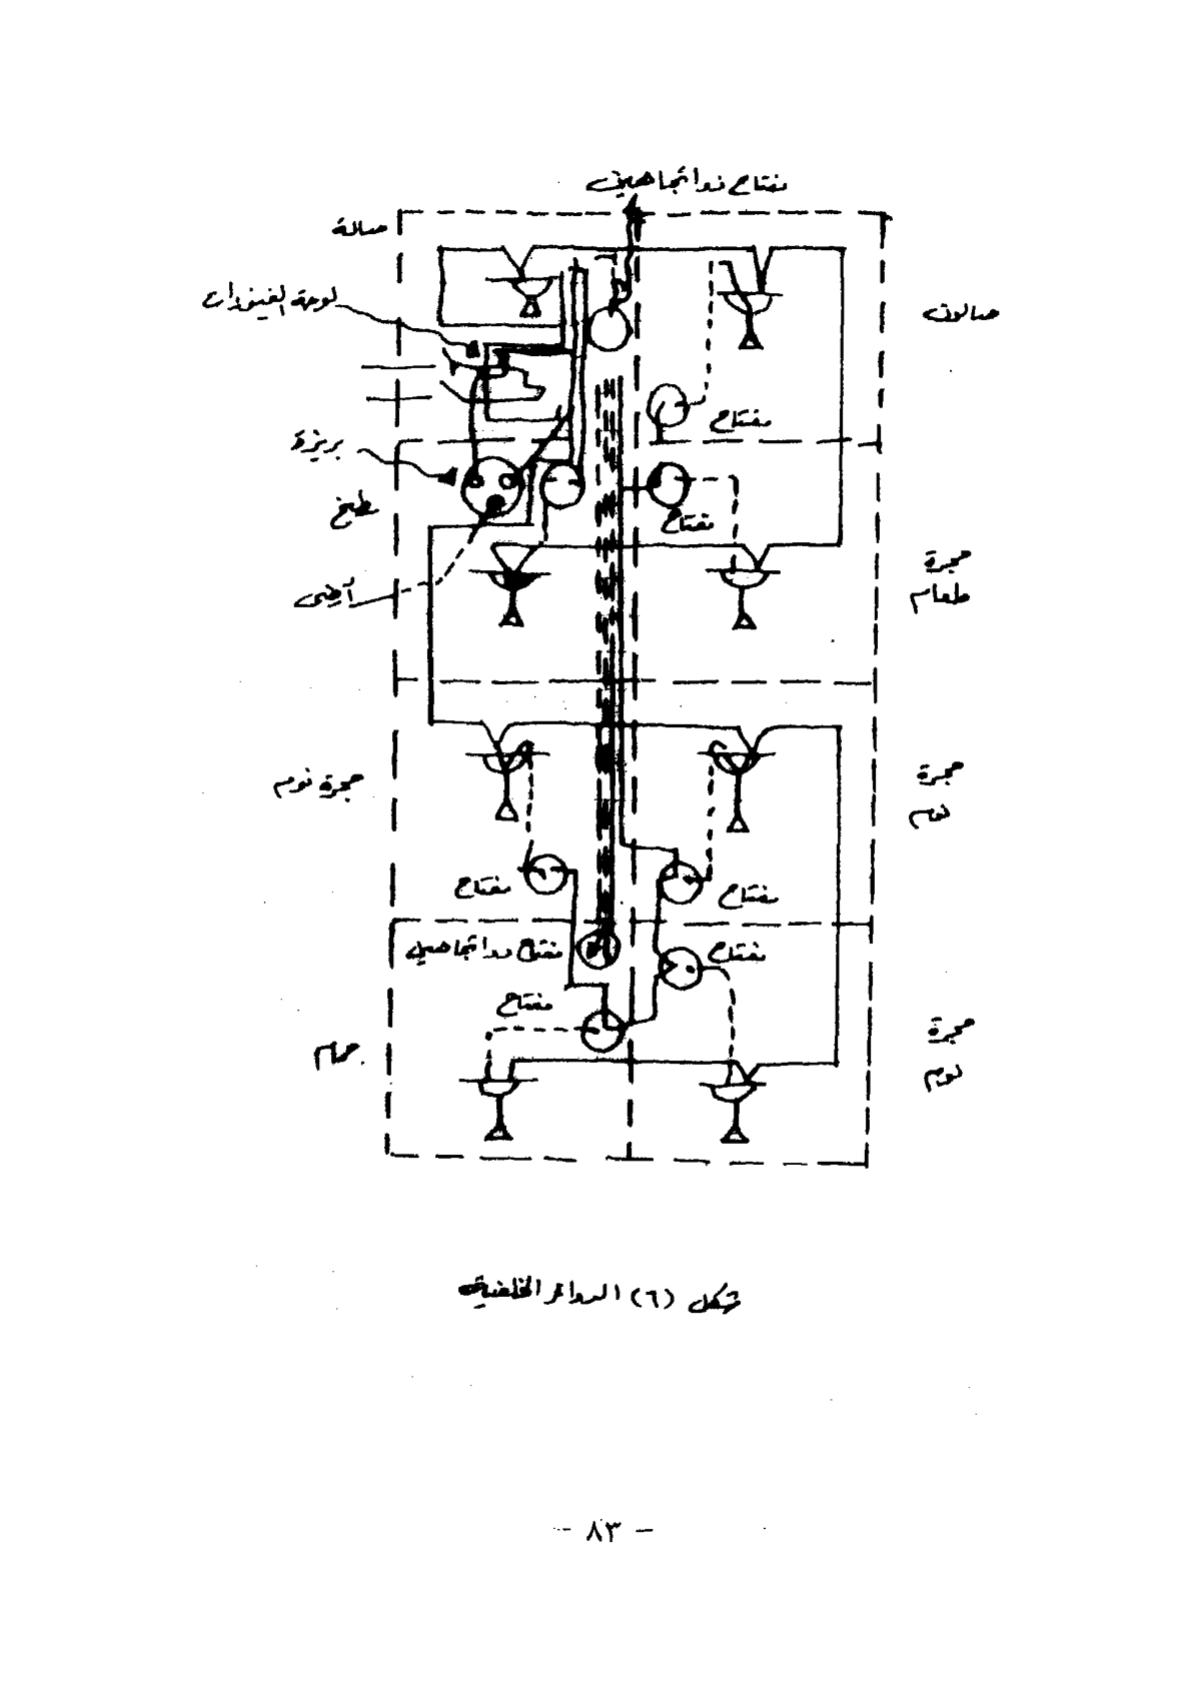 مفتاح ذو اتجاهين
صالة
لوحة الفيوزات
صالون
مفتاح
بريزة
مطبخ
مفتاح
أرضى
حجرة
طعام
حجرة نوم
حجرة
نوم
مفتاح
مفتاح
مفتاح ذو اتجاهين
مفتاح
مفتاح
حمام
حجرة
نوم
شكل (٦) الدوائر الخلفية
- ٨٣ -